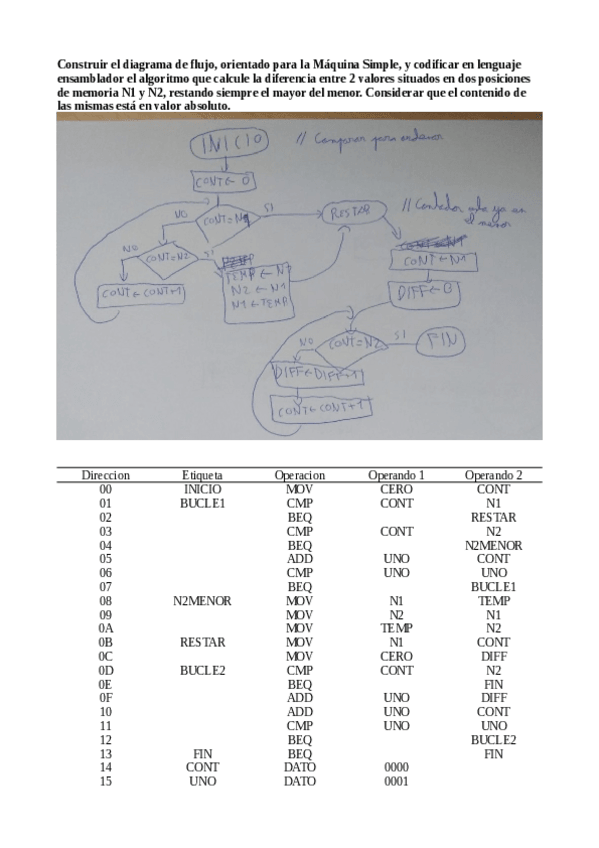 Construir el diagrama de flujo, orientado para la Máquina Simple, y codificar en lenguaje
ensamblador el algoritmo que calcule la diferencia entre 2 valores situados en dos posiciones
de memoria N1 y N2, restando siempre el mayor del menor. Considerar que el contenido de
las mismas está en valor absoluto.
INICIO // Comparar para ordenar
CONT ← 0
NO CONT=N1 SI RESTAR // Contador vale ya en el menor
NO CONT=N2 SI
CONT ← CONT+1
TEMP ← N2
N2 ← N1
N1 ← TEMP
CONT ← N1
DIFF ← 0
NO CONT=N2 SI FIN
DIFF ← DIFF+1
CONT ← CONT+1
Direccion Etiqueta Operacion Operando 1 Operando 2
00 INICIO MOV CERO CONT
01 BUCLE1 CMP CONT N1
02 BEQ RESTAR
03 CMP CONT N2
04 BEQ N2MENOR
05 ADD UNO CONT
06 CMP UNO UNO
07 BEQ BUCLE1
08 N2MENOR MOV N1 TEMP
09 MOV N2 N1
0A MOV TEMP N2
0B RESTAR MOV N1 CONT
0C MOV CERO DIFF
0D BUCLE2 CMP CONT N2
0E BEQ FIN
0F ADD UNO DIFF
10 ADD UNO CONT
11 CMP UNO UNO
12 BEQ BUCLE2
13 FIN BEQ FIN
14 CONT DATO 0000
15 UNO DATO 0001